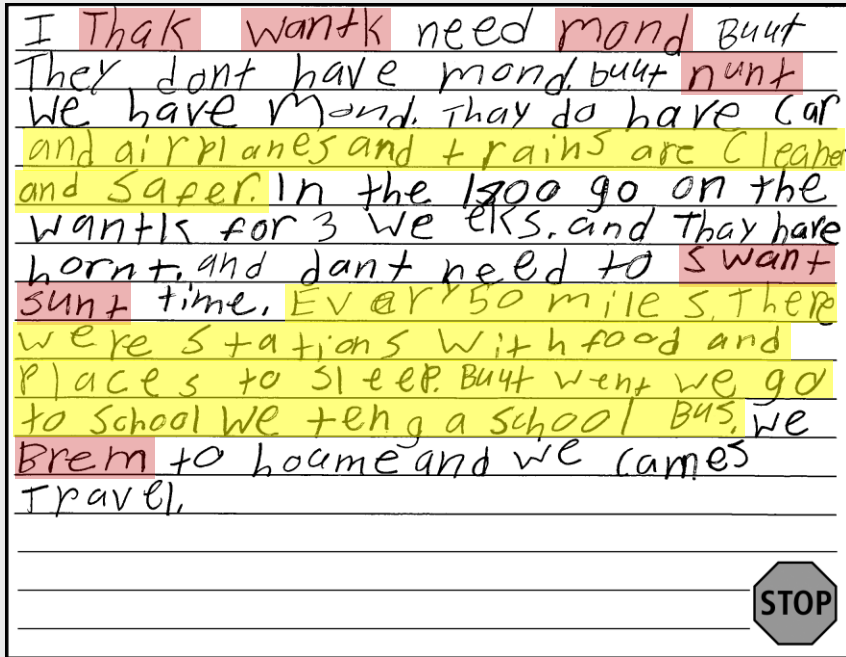 I Thak wantk need mond Buut
They dont have mond. buut nunt
we have mond. Thay do have Car
and airplanes and trains are Cleaner
and Safer. In the 1800 go on the
wantk for 3 we eks. and Thay have
hornt. and dant need to swant
sunt time. Every 50 miles. There
were stations with food and
places to sleep. Buut went we go
to school we teng a school Bus. we
Brem to houme and we cames
Travel.
STOP